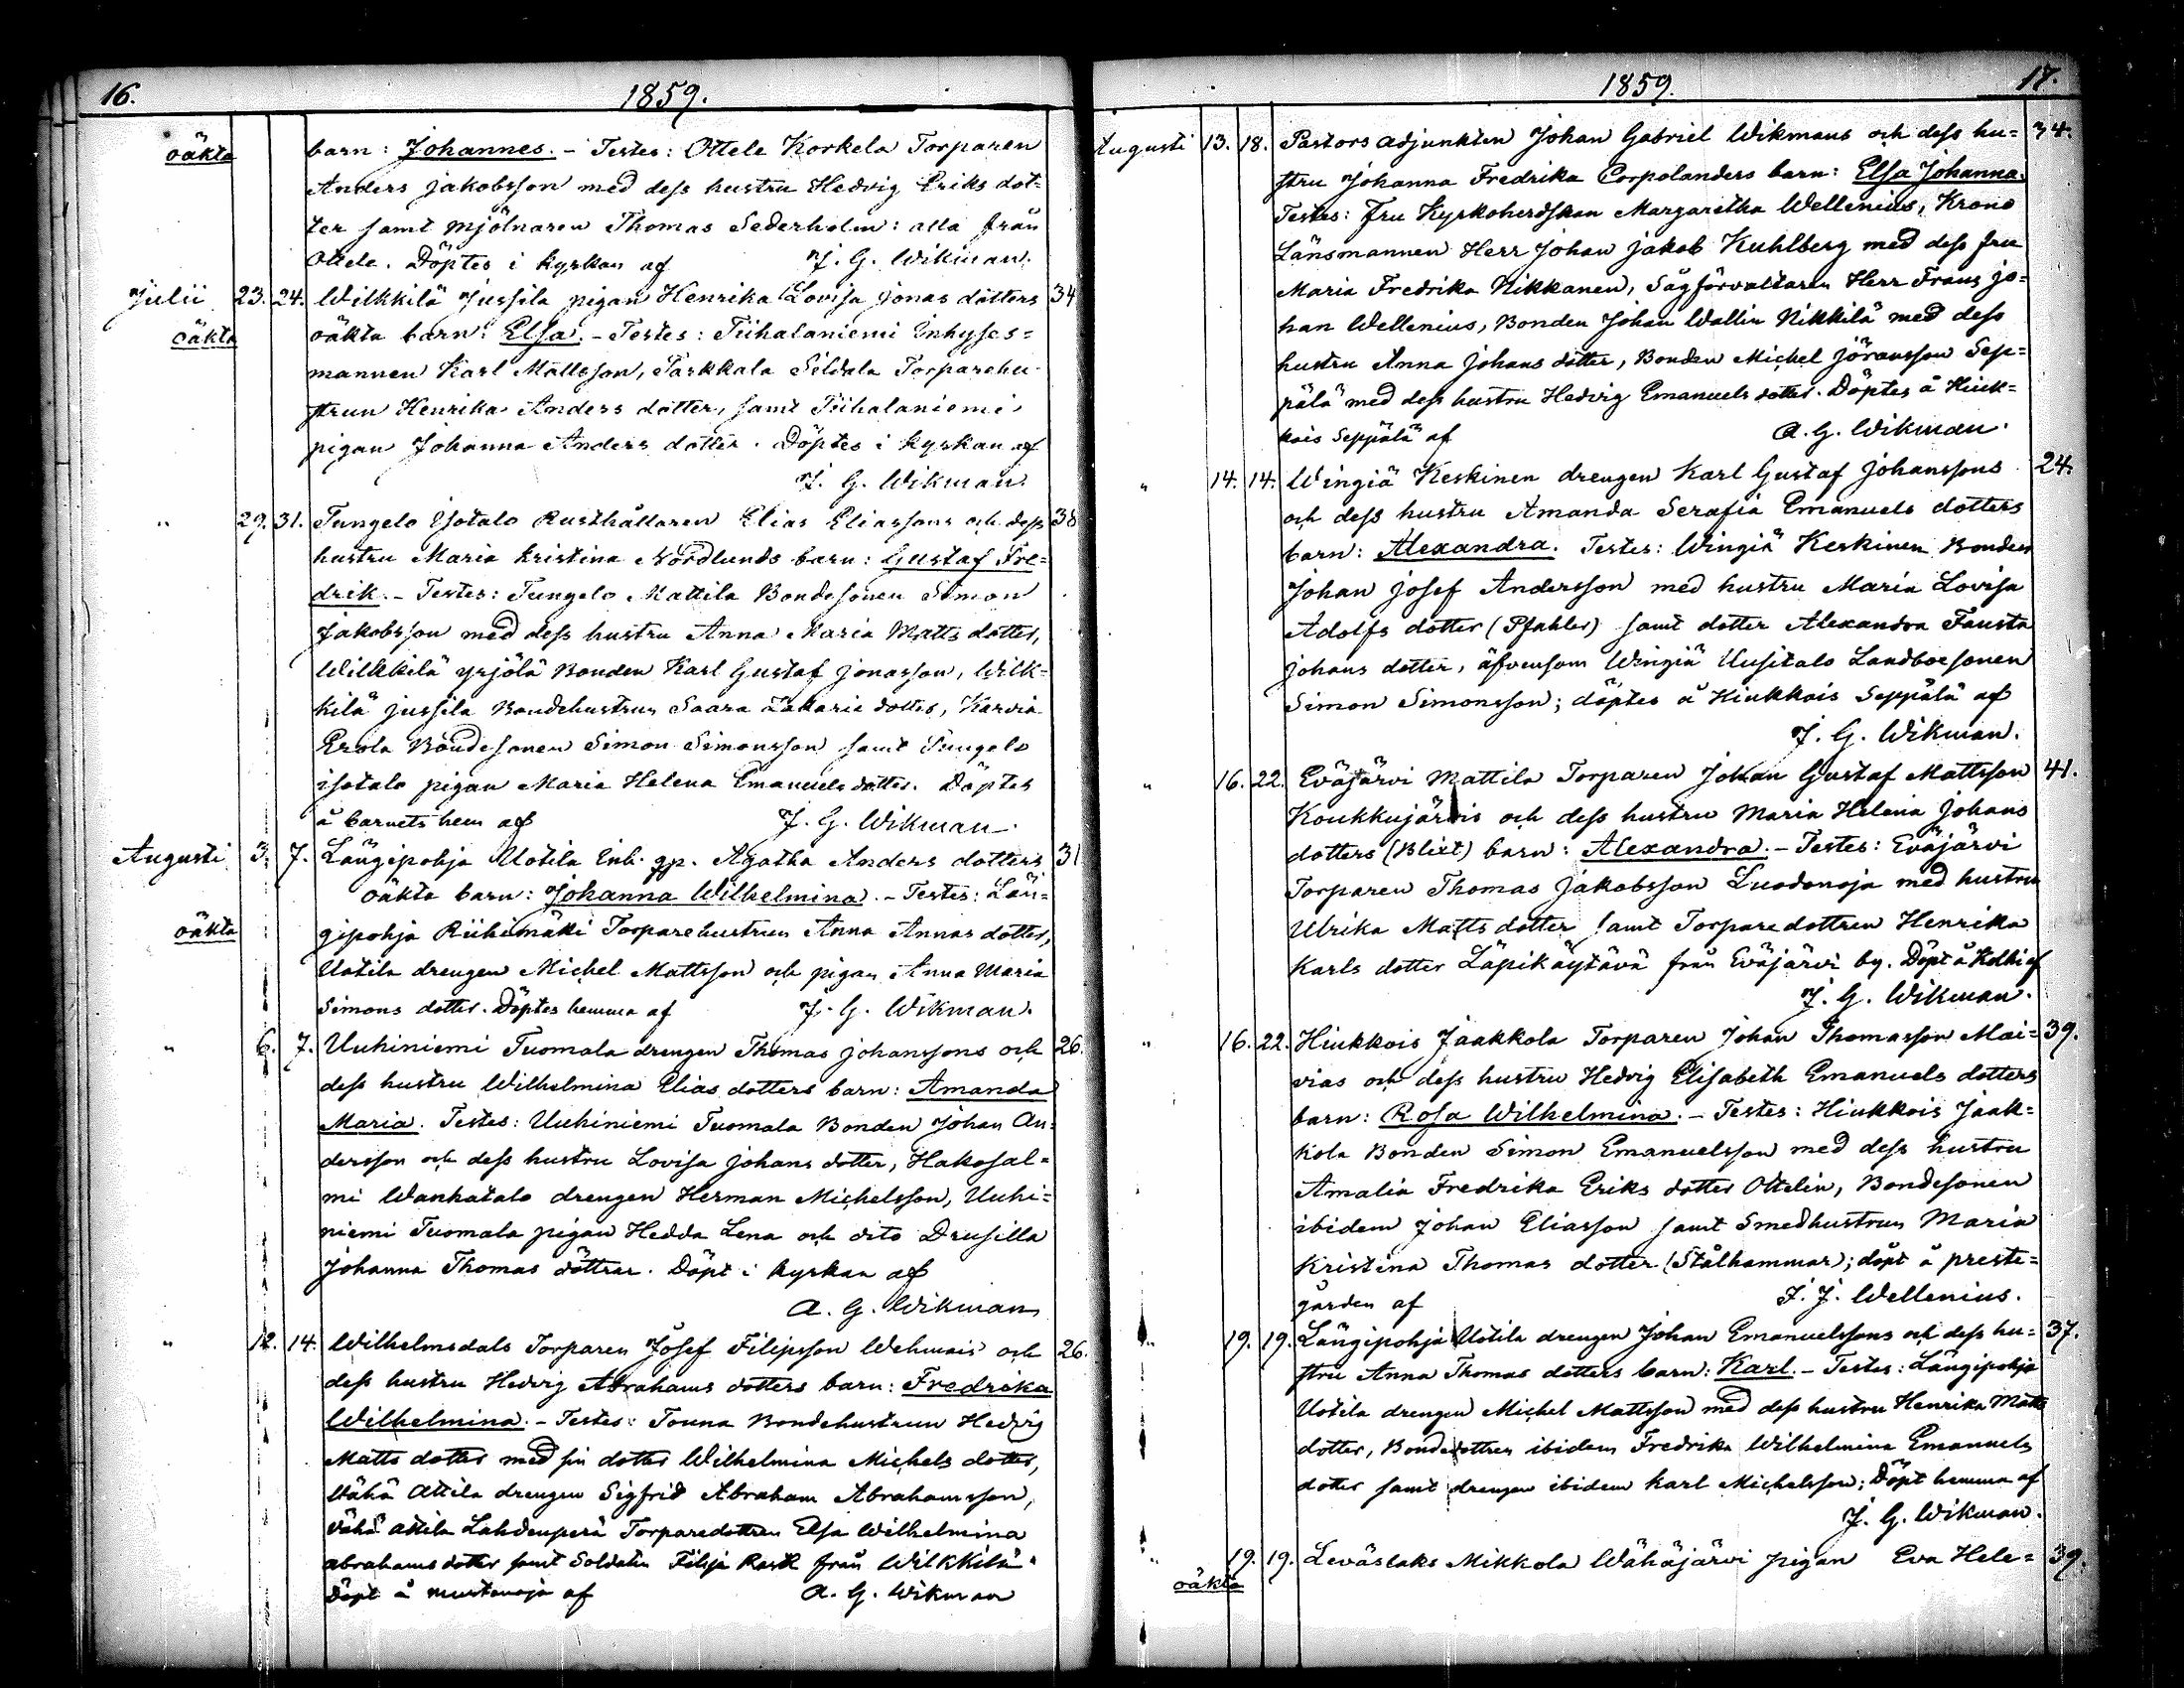 16.
1859.
oäkta
barn: Johannes. - Testes: Ottele Korkela Torparen
Anders Jakobsson med dess hustru Hedvig Eriks dot=
ter samt Mjölnaren Thomas Sederholm: alla från
Ottele. Döptes i kyrkan af J. G. Wikman.
Julii 23. 24. Wilkkilä Jussila pigan Henrika Lovisa Jonas dotters 34
oäkta oäkta barn: Elsa. - Testes: Tiihalaniemi Inhyses=
mannen Karl Mattsson, Tarkkala Sildala Torparehu-
strun Henrika Anders dotter, samt Tiihalaniemi
pigan Johanna Anders dotter. Döptes i kyrkan af
J. G. Wikman.
" 29. 31. Tungelo Isotalo Rusthållaren Elias Eliassons och dess 38
hustru Maria Kristina Nordlunds barn: Gustaf Fre=
drik. - Testes: Tungelo Mattila Bondesonen Simon
Jakobsson med dess hustru Anna Maria Matts dotter,
Wilkkilä Yrjölä Bonden Karl Gustaf Jonasson, Wilk=
kilä Jussila Bondehustrun Saara Zakaria dotter, Karvia
Erola Bondesonen Simon Simonsson samt Tungelo
isotalo pigan Maria Helena Emanuels dotter. Döptes
å barnets hem af J. G. Wikman.
Augusti 3. 7. Längipohja Uotila Enk. gp. Agatha Anders dotters 31
oäkta barn: Johanna Wilhelmina. - Testes: Län=
oäkta gipohja Riihimäki Torparehustrun Anna Annas dotter,
Uotila drengen Michel Mattsson och pigan Anna Maria
Simons dotter. Döptes hemma af J. G. Wikman.
" 6. 7. Uuhiniemi Tuomala drengen Thomas Johanssons och 26.
dess hustru Wilhelmina Elias dotters barn: Amanda
Maria. Testes: Uuhiniemi Tuomala Bonden Johan An=
dersson och dess hustru Lovisa Johans dotter, Hakosal=
mi Wanhatalo drengen Herman Michelsson, Uuhi=
niemi Tuomala pigan Hedda Lena och dito Drusilla
Johanna Thomas döttrar. Döpt i kyrkan af
A. G. Wikman
" 12. 14. Wilhelmsdals Torparen Josef Filipsson Wehmais och 26.
dess hustru Hedvig Abrahams dotters barn: Fredrika
Wilhelmina. - Testes: Touna Bondehustrun Hedvig
Matts dotter med sin dotter Wilhelmina Michels dotter,
Wähä Attila drengen Sigfrid Abraham Abrahamsson,
Vähä attila Lahdenperä Torparedottren Elsa Wilhelmina
Abrahams dotter samt Soldaten Filip Rask från Wilkkilä.
Döpt å Mustanoja af A. G. Wikman
1859.
17.
Augusti 13. 18. Pastors adjunkten Johan Gabriel Wikmans och dess hu= 34.
stru Johanna Fredrika Corpolanders barn: Elsa Johanna.
Testes: Fru Kyrkoherdskan Margaretha Wellenius, Krono
Länsmannen Herr Johan Jakob Kuhlberg med dess fru
Maria Fredrika Nikkanen, Sågförvaltaren Herr Frans Jo=
han Wellenius, Bonden Johan Wallin Nikkilä med dess
hustru Anna Johans dotter, Bonden Michel Jöransson Sep=
pälä med dess hustru Hedvig Emanuels dotter. Döptes å Hiuk=
kois Seppälä af A. G. Wikman.
" 14. 14. Wingiä Keskinen drengen Karl Gustaf Johanssons 24.
och dess hustru Amanda Serafia Emanuels dotters
barn: Alexandra. Testes: Wingiä Keskinen Bonden
Johan Josef Andersson med hustru Maria Lovisa
Adolfs dotter (Pfahler) samt dotter Alexandra Fausta
Johans dotter, äfvensom Wingiä Uusitalo Landboesonen
Simon Simonsson; döptes å Hiukkois Seppälä af
J. G. Wikman.
" 16. 22. Eväjärvi Mattila Torparen Johan Gustaf Mattsson 41.
Koukkujärvis och dess hustru Maria Helena Johans
dotters (Blixt) barn: Alexandra. - Testes: Eväjärvi
Torparen Thomas Jakobsson Luodonoja med hustru
Ulrika Matts dotter samt Torparedottren Henrika
Karls dotter Läpikäytävä från Eväjärvi by. Döpt å Kolhi af
J. G. Wikman.
" 16. 22. Hiukkois Jaakkola Torparen Johan Thomasson Mai= 39.
vias och dess hustru Hedvig Elisabeth Emanuels dotters
barn: Rosa Wilhelmina. - Testes: Hiukkois Jaak=
kola Bonden Simon Emanuelsson med dess hustru
Amalia Fredrika Eriks dotter Ottelin, Bondesonen
ibidem Johan Eliasson samt Smedhustrun Maria
Kristina Thomas dotter (Stålhammar); döpt å preste=
gården af F. J. Wellenius.
" 19. 19. Längipohja Uotila drengen Johan Emanuelssons och dess hu= 37.
stru Anna Thomas dotters barn: Karl. - Testes: Längipohja
Uotila drengen Michel Mattsson med dess hustru Henrika Matts
dotter, Bondedottren ibidem Fredrika Wilhelmina Emanuels
dotter samt drengen ibidem Karl Michelsson; Döpt hemma af
J. G. Wikman.
" 19. 19. Leväslaks Mikkola Wähäjärvi pigan Eva Hele= 39.
oäkta